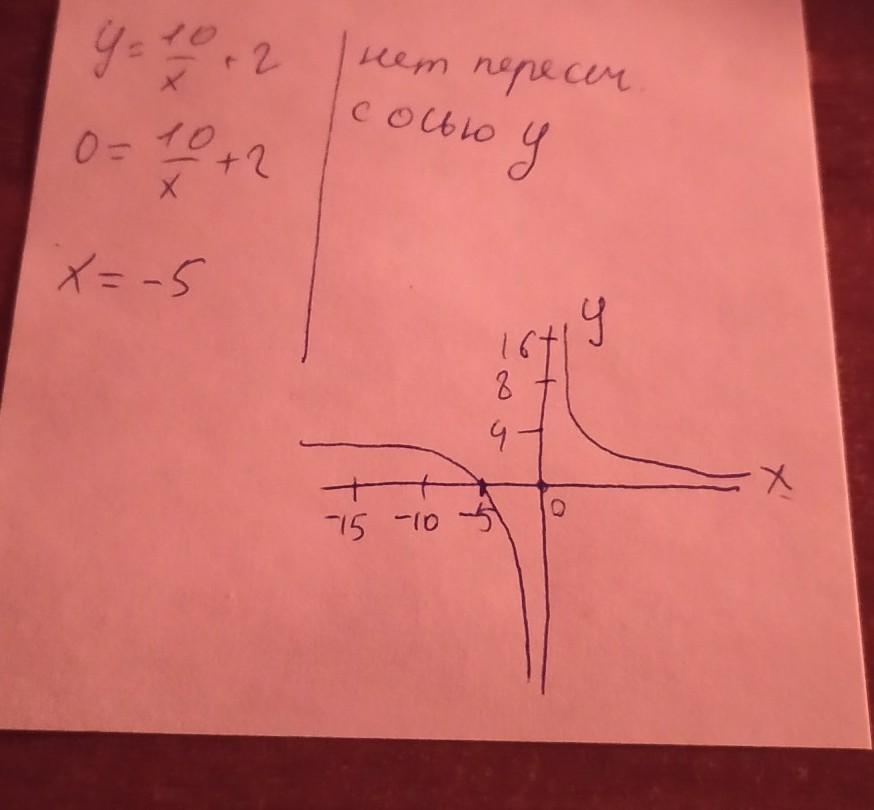 y = 10/x + 2
0 = 10/x + 2
x = -5
нет пересеч.
с осью y
y
16
8
4
x
-15 -10 -5 0